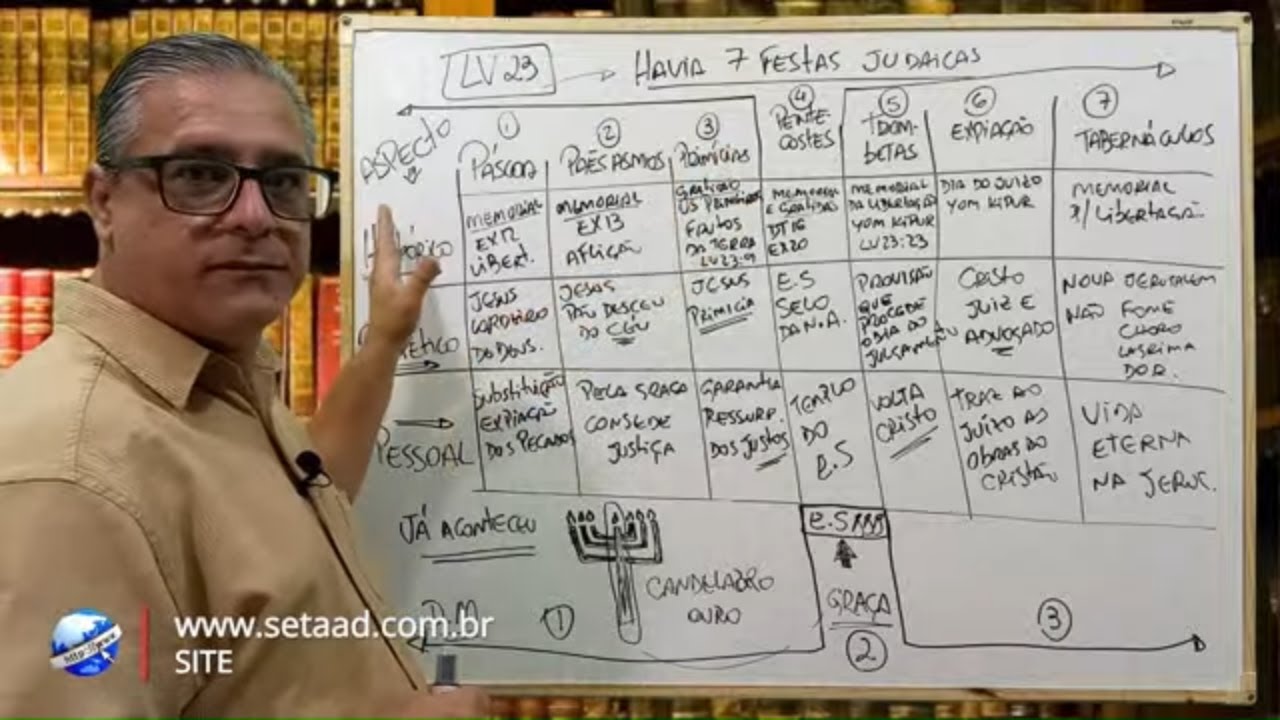 LV 23 → HAVIA 7 FESTAS JUDAICAS
ASPECTO
1
PÁSCOA
2
PÃES ASMOS
3
PRIMÍCIAS
4
PENTE-
COSTES
5
TROM-
BETAS
6
EXPIAÇÃO
7
TABERNÁCULOS
MEMORIAL
EX12
LIBERT.
MEMORIAL
EX13
AFLIÇÃO
GRATIDÃO
OS PRIMEIROS
FRUTOS
DA TERRA
LV23:9
MEMORIAL
E GRATIDÃO
DT16
EX20
MEMORIAL
DA LIBERTAÇÃO
YOM KIPUR
LV23:23
DIA DO JUIZO
YOM KIPUR
MEMORIAL
P/ LIBERTAÇÃO
JESUS
CORDEIRO
DO DEUS.
JESUS
PÃO DESCEU
DO CÉU
JESUS
PRIMICIA
E.S
SELO
DA N.A.
PROVISÃO
QUE
PROCEDE
O DIA DO
JULGAMENTO
CRISTO
JUIZ E
ADVOGADO
NOVA JERUSALEM
NÃO FOME
CHORO
LAGRIMA
DOR.
PESSOAL
SUBSTITUIÇÃO
EXPIAÇÃO
DOS PECADOS
PELA GRAÇA
CONSEDE
JUSTIÇA
GARANTIA
RESSURR.
DOS JUSTOS
TEMPLO
DO
E.S
VOLTA
CRISTO
TRAZ AO
JUÍZO AS
OBRAS DO
CRISTÃO
VIDA
ETERNA
NA JERUS.
JÁ ACONTECEU
1
CANDELABRO
OURO
GRAÇA
2
3
www.setaad.com.br
SITE